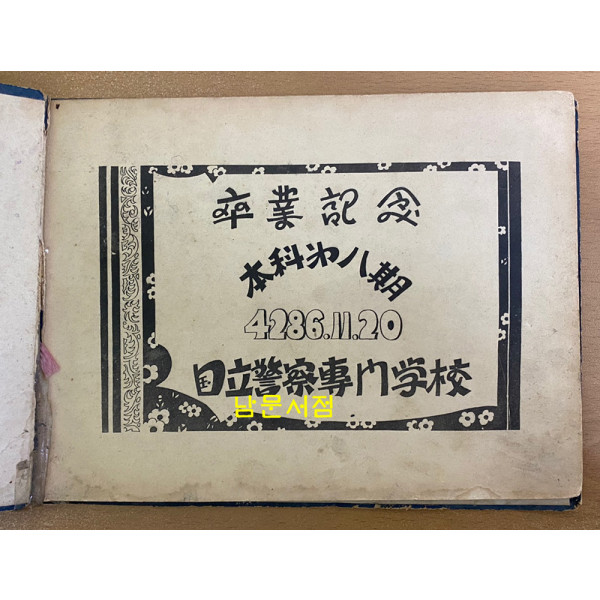 卒業記念
本科第八期
4286.11.20
国立警察専门学校
남문서점